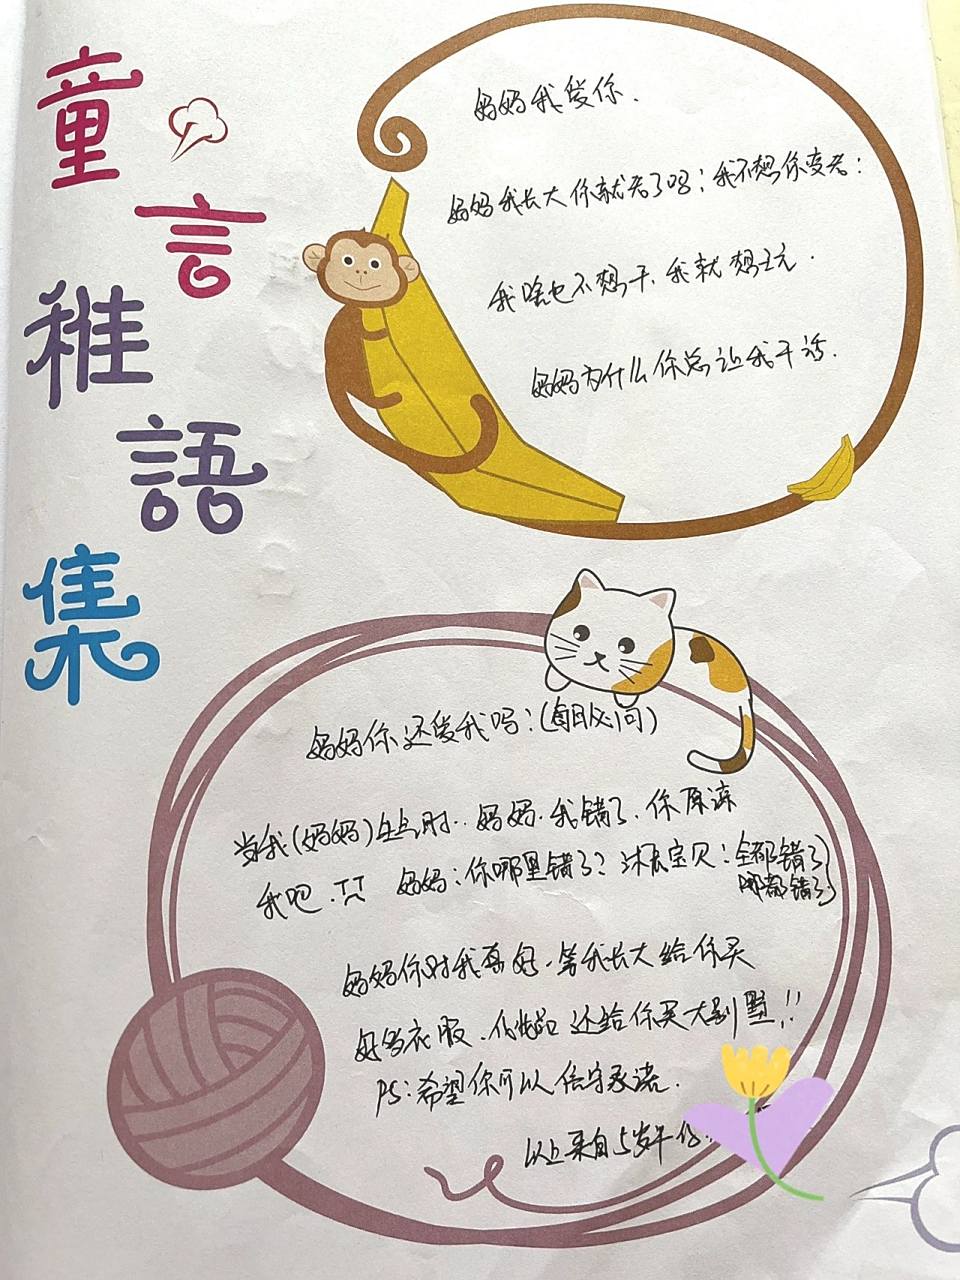 童言稚語集
妈妈我爱你.
妈妈我长大你就老了吗;我不想你变老:
我啥也不想干.我就想玩.
妈妈为什么你总让我干活.
妈妈你还爱我吗:(每日必问)
当我(妈妈)生气时..妈妈.我错了.你原谅
我吧. 妈妈:你哪里错了? 宝贝:全都错了
哪都错了
妈妈你对我真好.等我长大给你买
好多衣服.化妆品 还给你买大别墅!!
PS:希望你可以信守承诺.
以上来自5岁半